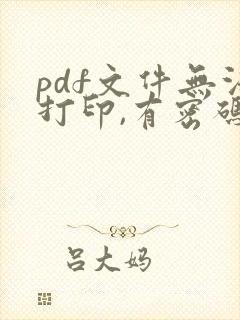 pdf文件無法
打印,有密碼
吕大妈